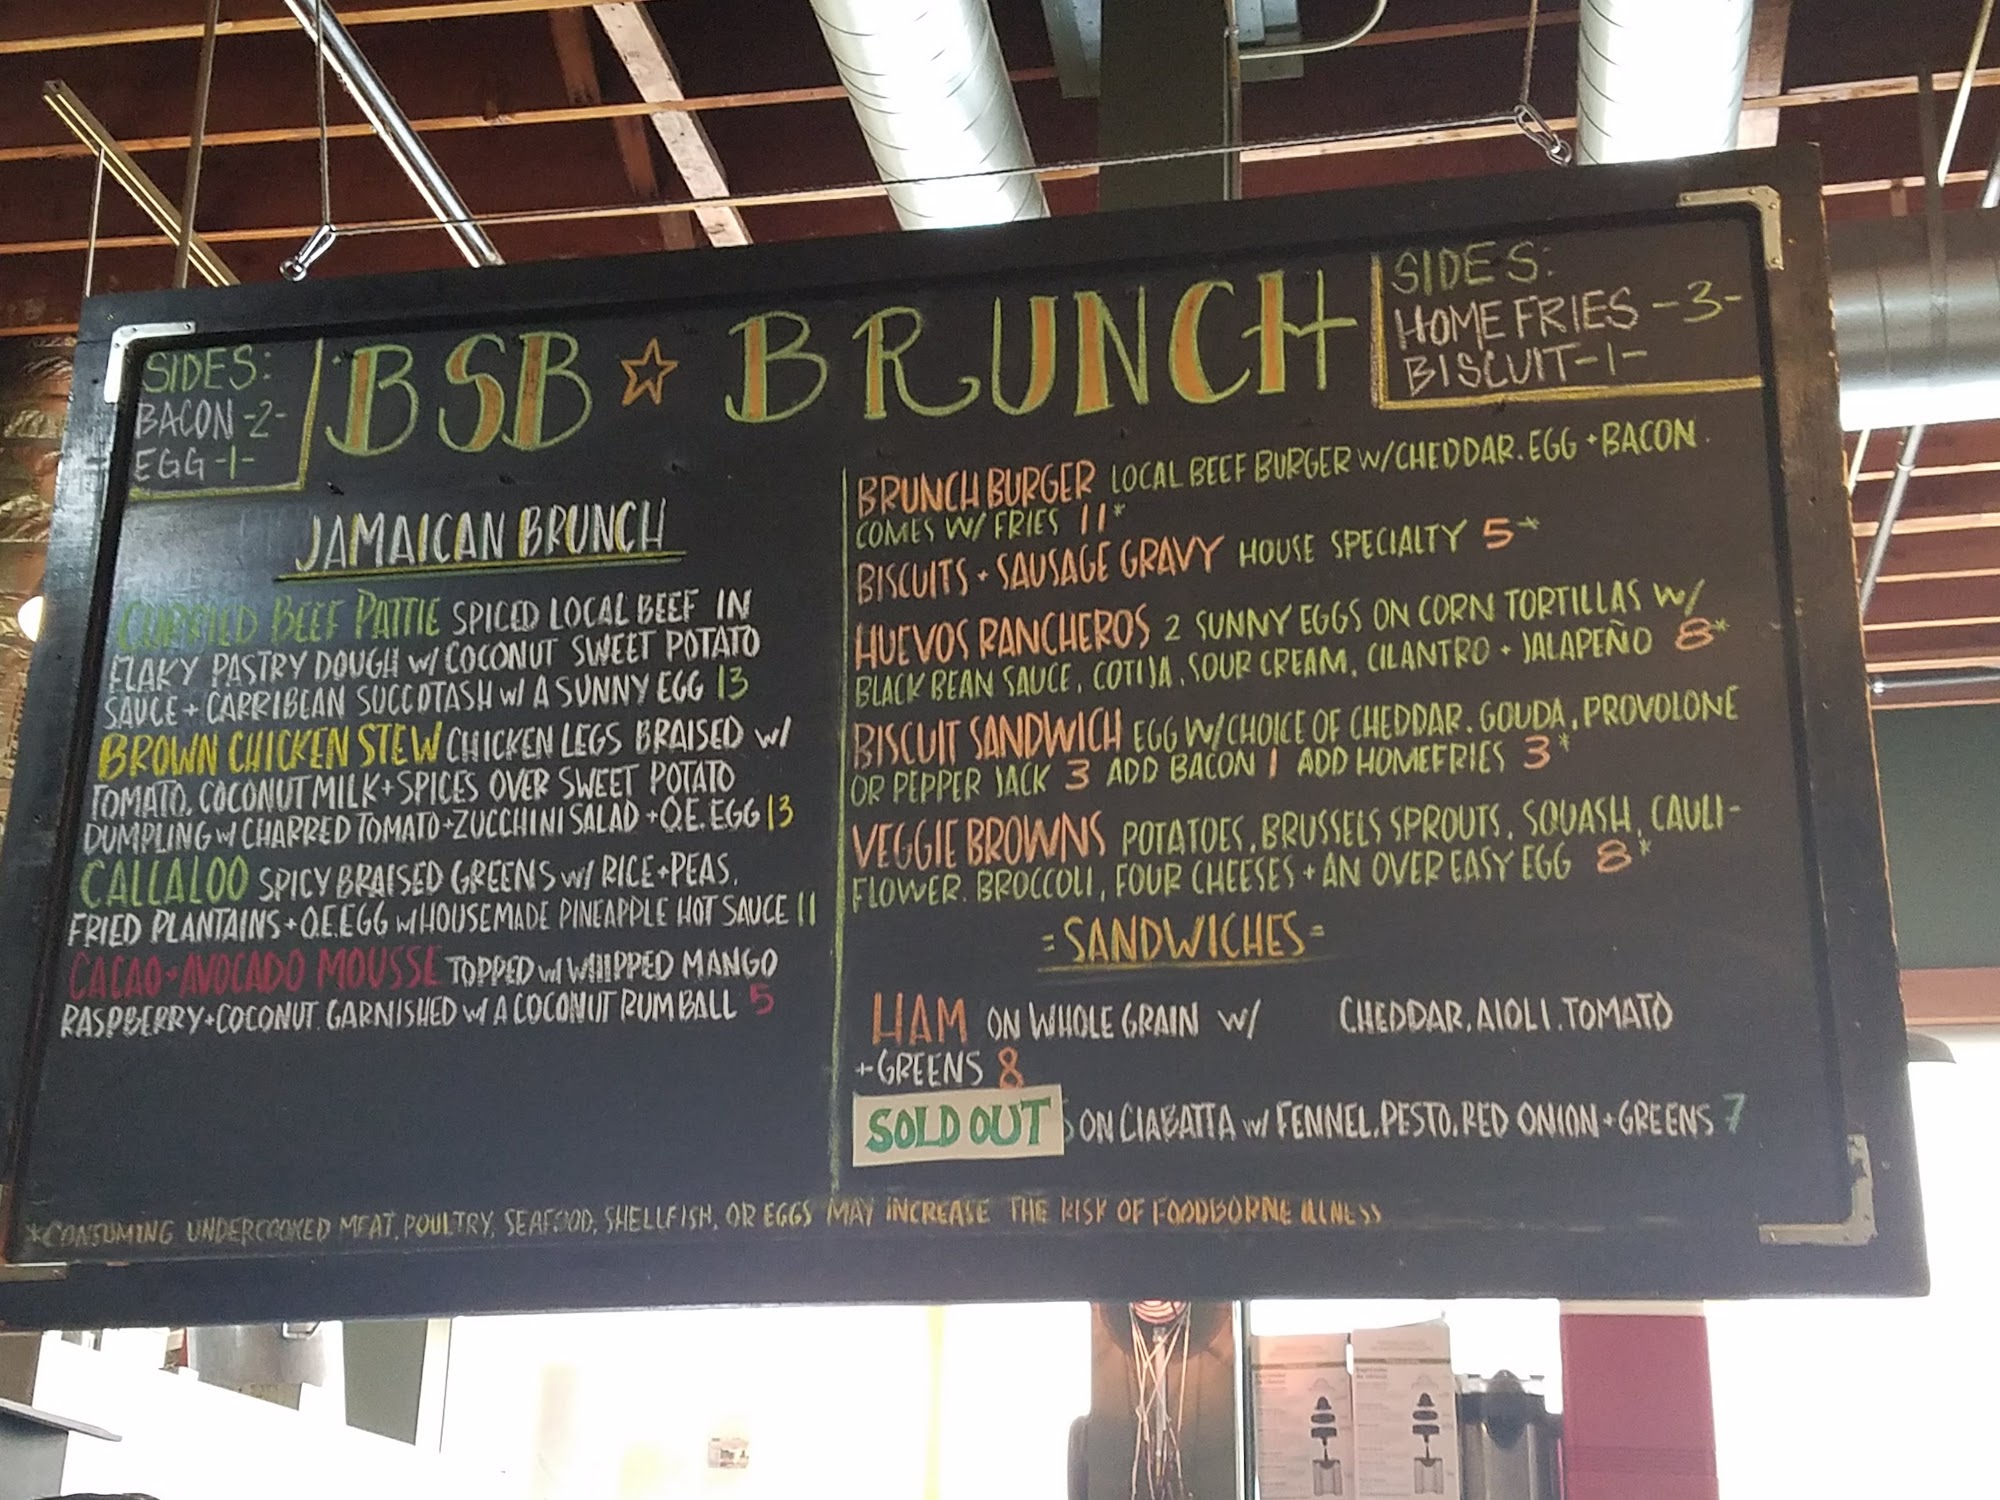 SIDES:
BACON -2-
EGG -1-
BSB ☆ BRUNCH
SIDES:
HOME FRIES -3-
BISCUIT -1-
JAMAICAN BRUNCH
CURRIED BEEF PATTIE SPICED LOCAL BEEF IN
FLAKY PASTRY DOUGH W/ COCONUT SWEET POTATO
SAUCE + CARRIBEAN SUCCOTASH W/ A SUNNY EGG 13
BROWN CHICKEN STEW CHICKEN LEGS BRAISED W/
TOMATO, COCONUT MILK + SPICES OVER SWEET POTATO
DUMPLING W/ CHARRED TOMATO + ZUCCHINI SALAD + O.E. EGG 13
CALLALOO SPICY BRAISED GREENS W/ RICE + PEAS,
FRIED PLANTAINS + O.E. EGG W/ HOUSEMADE PINEAPPLE HOT SAUCE 11
CACAO + AVOCADO MOUSSE TOPPED W/ WHIPPED MANGO
RASPBERRY + COCONUT GARNISHED W/ A COCONUT RUM BALL 5
BRUNCH BURGER LOCAL BEEF BURGER W/ CHEDDAR, EGG + BACON.
COMES W/ FRIES 11*
BISCUITS + SAUSAGE GRAVY HOUSE SPECIALTY 5*
HUEVOS RANCHEROS 2 SUNNY EGGS ON CORN TORTILLAS W/
BLACK BEAN SAUCE, COTIJA, SOUR CREAM, CILANTRO + JALAPEÑO 8*
BISCUIT SANDWICH EGG W/ CHOICE OF CHEDDAR, GOUDA, PROVOLONE
OR PEPPER JACK 3 ADD BACON 1 ADD HOMEFRIES 3*
VEGGIE BROWNS POTATOES, BRUSSELS SPROUTS, SQUASH, CAULI-
FLOWER, BROCCOLI, FOUR CHEESES + AN OVER EASY EGG 8*
= SANDWICHES =
HAM ON WHOLE GRAIN W/ CHEDDAR, AIOLI, TOMATO
+ GREENS 8
SOLD OUT ON CIABATTA W/ FENNEL, PESTO, RED ONION + GREENS 7
*CONSUMING UNDERCOOKED MEAT, POULTRY, SEAFOOD, SHELLFISH, OR EGGS MAY INCREASE THE RISK OF FOODBORNE ILLNESS